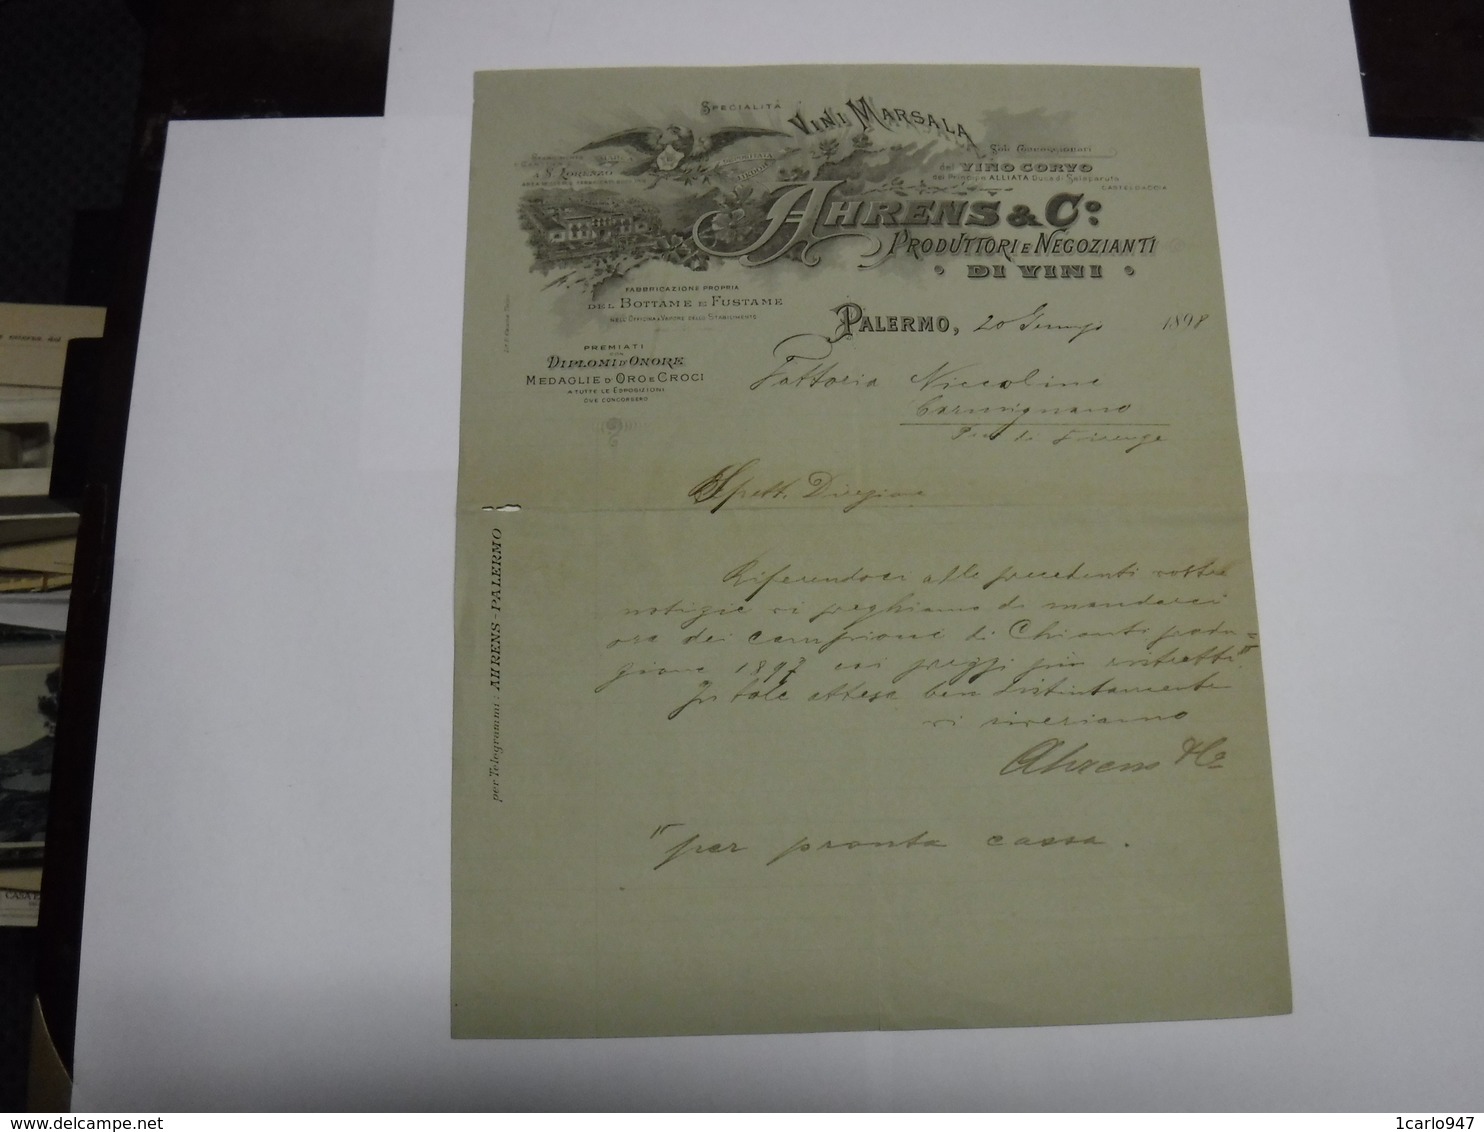 SPECIALITÀ
VINI MARSALA
A S. LORENZO
Soli Concessionari
del VINO CORVO
del Principe ALLIATA Duca di Salaparuta
CASTELDACCIA
AHRENS & C.º
PRODUTTORI E NEGOZIANTI
DI VINI
FABBRICAZIONE PROPRIA
DEL BOTTAME E FUSTAME
NELL'OFFICINA A VAPORE DELLO STABILIMENTO
PALERMO, 20 1898
PREMIATI
CON
DIPLOMI D'ONORE
MEDAGLIE D'ORO E CROCI
A TUTTE LE ESPOSIZIONI
OVE CONCORSERO
Fattoria Niccolini
Carmignano
di Firenze
Spett. Direzione
Riferendoci alle precedenti vostre
notizie vi preghiamo di mandarci
ora dei campioni di Chianti produ-
zione 1897 coi prezzi più ristretti "
In tale attesa ben distintamente
vi riveriamo
Ahrens & Co
" per pronta cassa.
per Telegrammi: AHRENS-PALERMO
CASA E
1carlo947